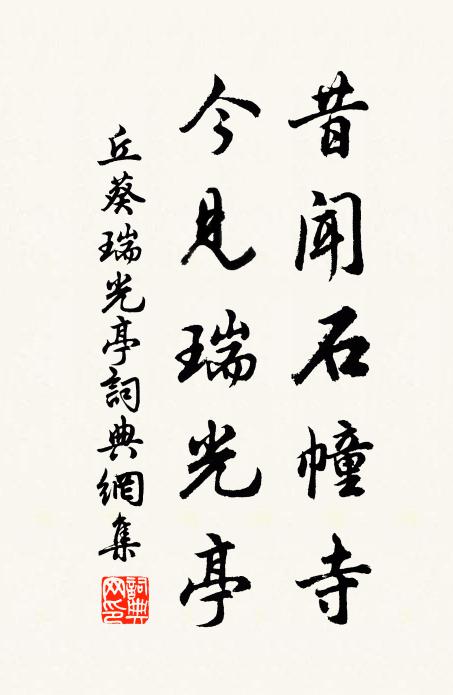 昔闻石幢寺
今见瑞光亭
丘葵瑞光亭詞典網集
詞典网印